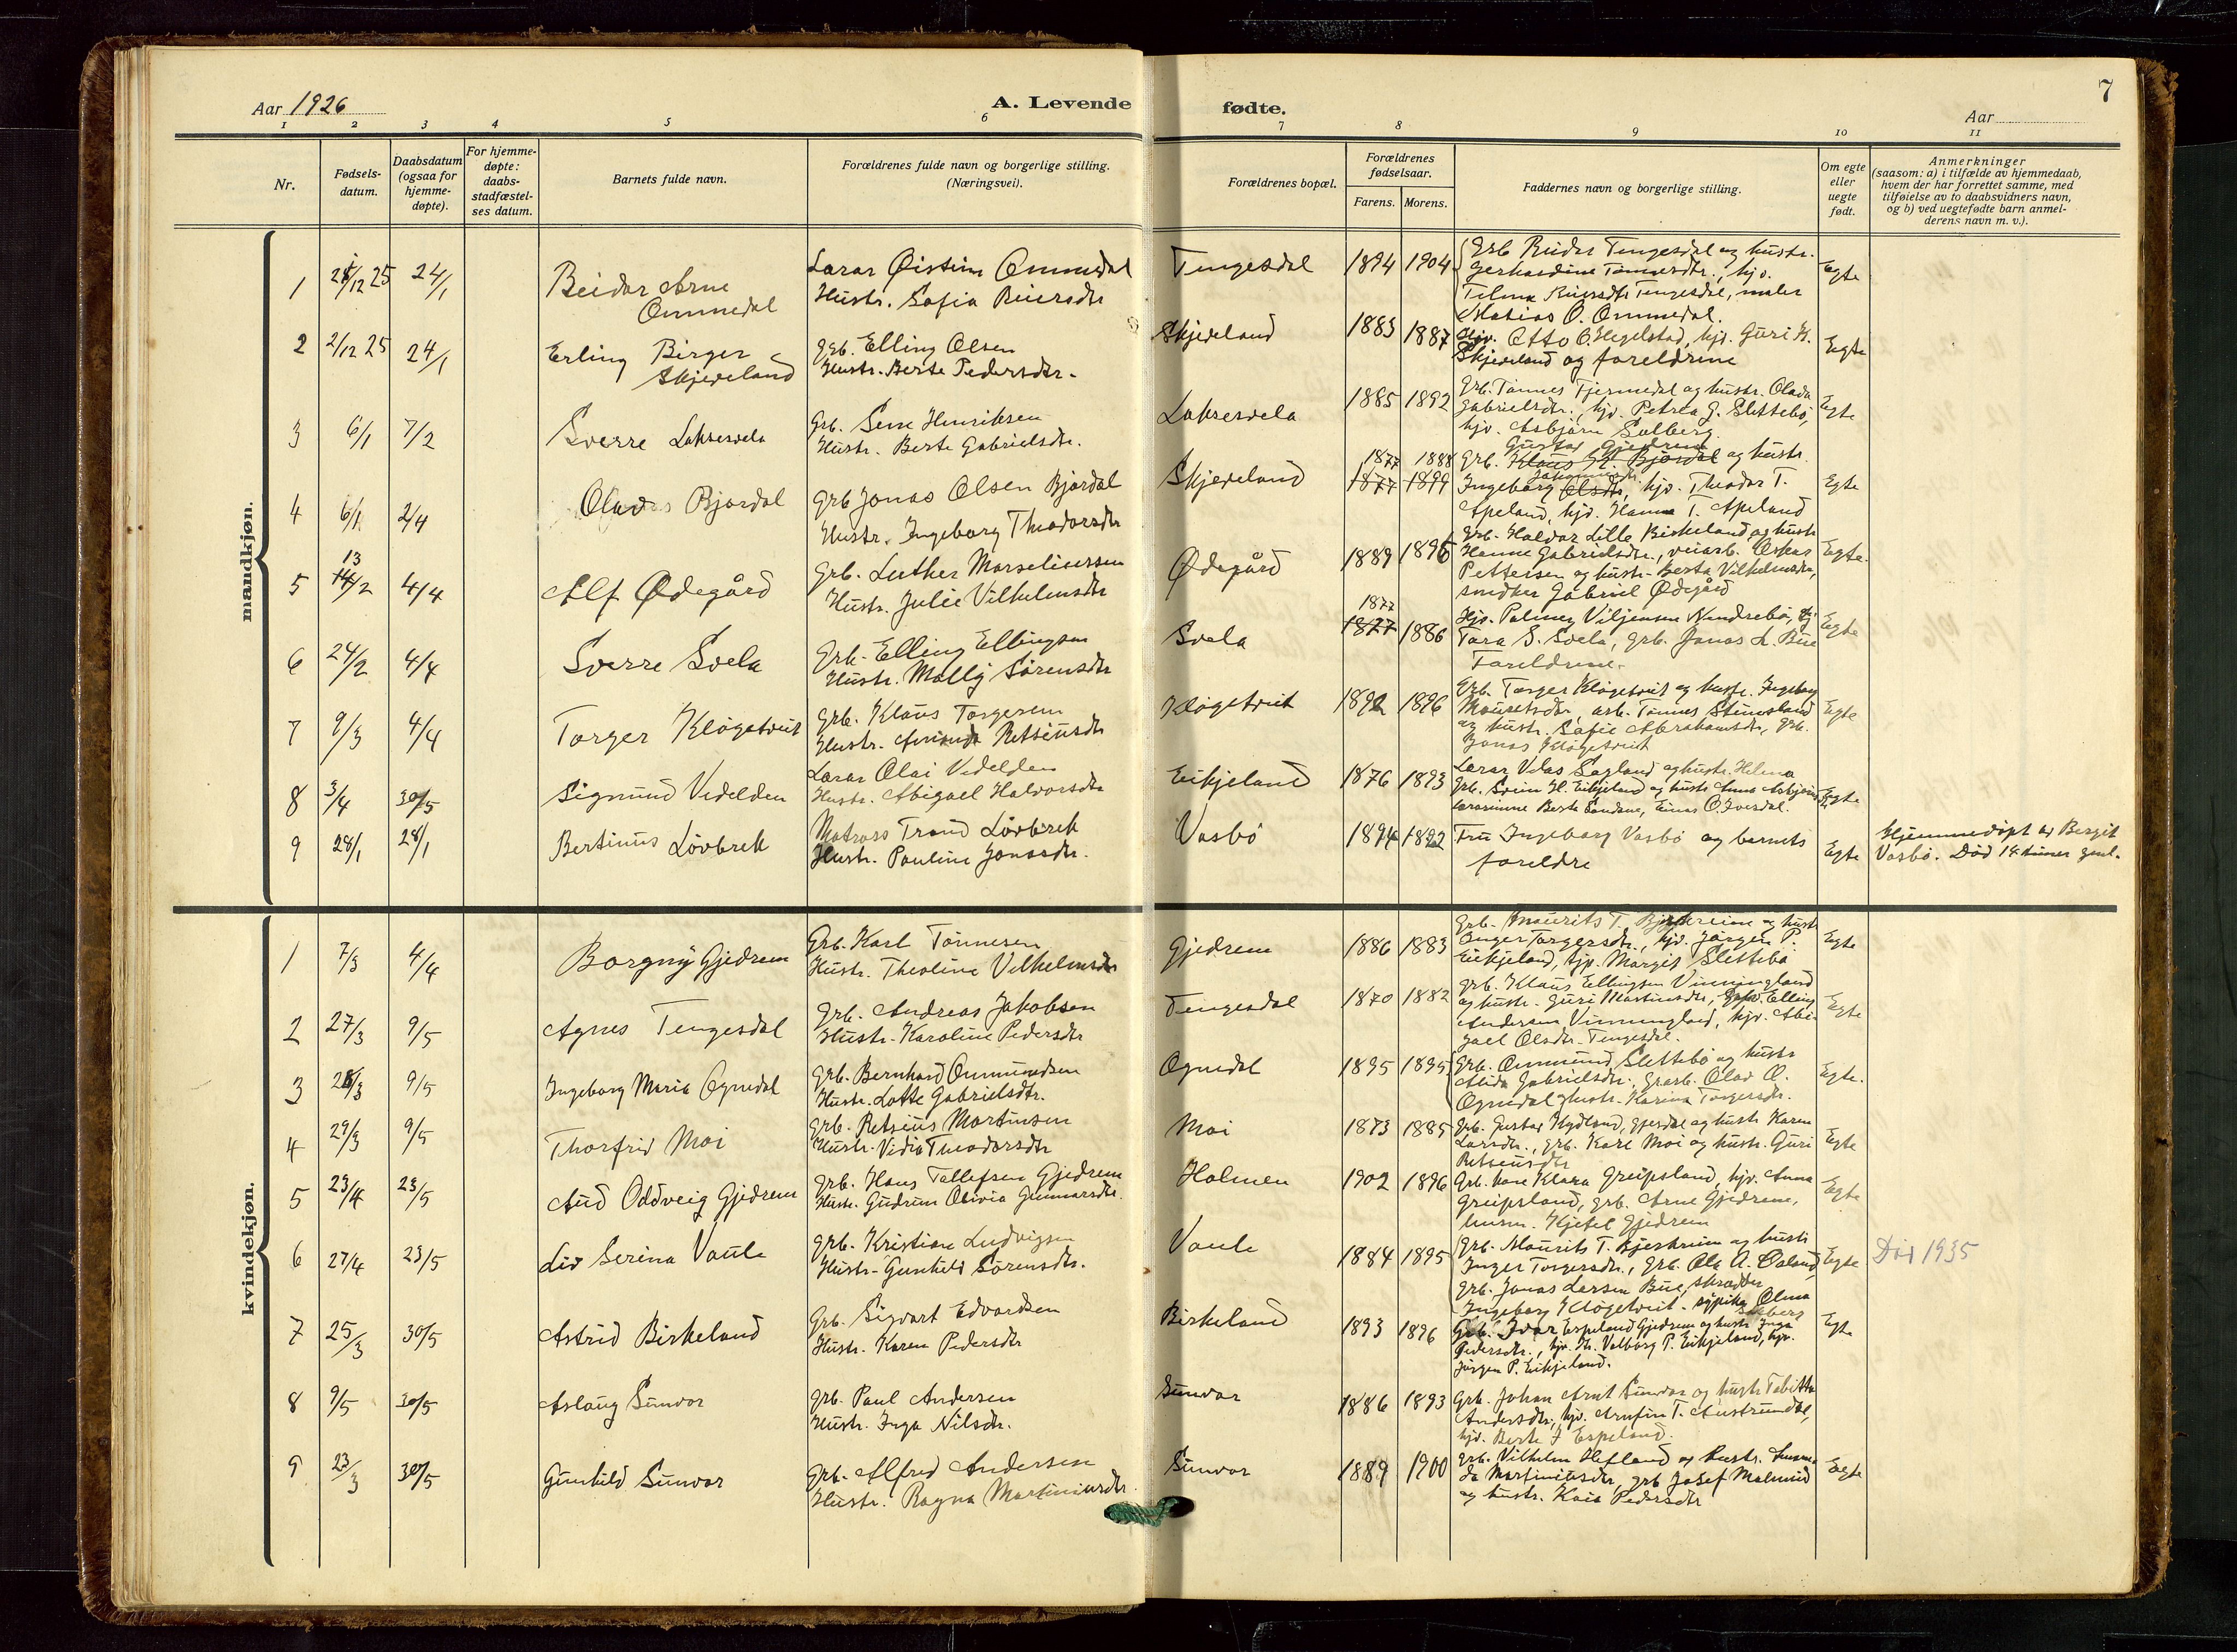 7
Aar 1926
A. Levende fødte.
Aar
1 2 3 4 5 6 7 8 9 10 11
Nr.
Fødsels-
datum.
Daabsdatum
(ogsaa for
hjemme-
døpte).
For hjemme-
døpte:
daabs-
stadfæstel-
ses datum.
Barnets fulde navn.
Forældrenes fulde navn og borgerlige stilling.
(Næringsvei).
Forældrenes bopæl.
Forældrenes
fødselsaar.
Farens. Morens.
Faddernes navn og borgerlige stilling.
Om egte
eller
uegte
født.
Anmerkninger
(saasom: a) i tilfælde av hjemmedaab,
hvem der har forrettet samme, med
tilføielse av to daabsvidners navn,
og b) ved uegtefødte barn anmel-
derens navn m. v.).
mandkjøn.
1 /12 25 24/1 Reidar Arne
Ommedal
Lærar Øistein Ommedal
Hustr. Sofia Reiersdtr
Tengesdal 1894 1904
Grb Reidar Tengesdal og hustr.
Gerhardine Tønnesdtr., hjv.
Telma Reiersdtr Tengesdal, maler
Matias O. Ommedal.
Egte
2 2/12 25 24/1 Erling Birger
Skjæveland
Grb. Elling Olsen
Hustr. Berte Pedersdtr.
Skjæveland 1883 1887
Otto O. Hegelstad, hjv. Guri K.
Skjæveland og foreldrine
Egte
3 6/1 7/2 Sverre Laksesvela
Grb. Sem Henriksen
Hustr. Berte Gabrielsdtr.
Laksesvela 1885 1892
Grb. Tønnes Tjermedal og hustr. Olava
Gabrielsdtr., hjv. Petrea G. Slettebø,
hjv. Asbjørn Solberg.
Egte
4 6/1 2/4 Olav Bjordal
Grb Jonas Olsen Bjordal
Hustr. Ingeborg Theodorsdtr
Skjæveland 1877 1888
1877 1899
Gustav Gjedrem
Grb. Klaus K. Bjordal og hustr.
Ingeborg Olsdtr, hjv. Theodor T.
Apeland, hjv. Hanna T. Apeland
Egte
5 13
14/2 4/4 Alf Ødegård
Grb. Luther Marseliussen
Hustr. Julie Vilhelmsdtr
Ødegård 1889 1895
Grb. Halvar Lille Birkeland og hustr
Hanne Gabrielsdtr., veiarb. Oskar
Pettersen og hustr. Berta Vilhelmsdtr,
snedker Gabriel Ødegård
Egte.
6 24/2 4/4 Sverre Svela
Grb. Elling Ellingsen
Hustr. Molly Sørensdtr
Svela 1877
1827 1886
Hjv. Palmer Viljensen Nundrebø, hj
Tora S. Svela, grb. Jonas L. Bue
Foreldrene.
Egte
7 9/3 4/4 Torger Kløgetveit
Grb. Klaus Torgersen
Hustr. Amanda Retseusdtr
Kløgetveit 1892 1896
Grb. Torger Kløgetveit og hustr. Ingeborg
Mauretsdtr, arb. Tønnes Steinsland
og hustr. Sofie Abrahamsdtr, Grb.
Jonas Kløgetveit
Egte
8 3/4 30/5 Sigmund Vedelden
Lærar Olai Vedelden
Hustr. Abigael Halvorsdtr
Eikjeland 1876 1893
Lærar Vilas Sagland og hustr. Helena
Grb. Svein H. Eikjeland og hustr Anna Asbjørnsdtr
lærarinne Berte Sandane, Einar O. Iversdal.
Egte
9 28/1 28/1 Bertinus Løvbrek
Matrass Trond Løvbrek
Hustr. Pauline Jonasdtr.
Vasbø 1894 1892
Fru Ingeborg Vasbø og barnets
foreldre
Egte
Hjemmedøpt av Bergit
Vasbø. Død 14 timer gml.
kvindekjøn.
1 7/3 4/4 Borgny Gjedrem
Grb. Karl Tønnesen
Hustr. Theoline Vilhelmsdtr
Gjedrem 1886 1883
Grb. Maurits T. Bjerkreim og hustr
Inger Torgersdtr., hjv. Jørgen P.
Eikjeland, hjv. Margit Slettebø
Egte
2 27/3 9/5 Agnes Tengesdal
Grb. Andreas Jakobsen
Hustr. Karoline Pedersdtr
Tengesdal 1870 1882
Grb. Klaus Ellingsen Vinningland
og hustr. Guri Martinsdtr, Elling
Andersen Vinningland, hjv. Abi-
gael Olsdtr. Tengesdal.
Egte
3 /3 9/5 Ingeborg Marie Ognedal
Grb. Bernhard Ommundsen
Hustr. Lotte Gabrielsdtr.
Ognedal 1895 1895
Grb. Ommund Slettebø og hustr
Alida Gabrielsdtr., Grarb. Olav O.
Ognedal og hustr. Karina Torgersdtr.
Egte.
4 29/3 9/5 Thorfrid Moi
Grb. Retseus Martinsen
Hustr. Vidia Theodorsdtr
Moi 1873 1885
Grb. Gustav Nydland, Gjesdal og hustr Karen
Larsdtr., grb. Karl Moi og hustr. Guri
Retseusdtr
Egte
5 23/4 23/5 Aud Oddveig Gjedrem
Grb. Hans Tollefsen Gjedrem
Hustr. Gudrun Olivia Gunnarsdtr.
Holmen 1902 1896
Grb. kone Klara Greipsland, hjv. Anna
Greipsland, grb. Arne Gjedrem,
husm. Kjetel Gjedrem
Egte
6 27/4 23/5 Liv Serina Vaule
Grb. Kristian Ludvigsen
Hustr. Gunhild Sørensdtr.
Vaule 1884 1895
Grb. Maurits T. Bjerkreim og hustr
Inger Torgersdtr., Grb. Ola A. Øaland,
Grb. Jonas Larsen Bue, skrædder
Ingeborg Kløgetveit. sypike Olma
Egte Død 1935
7 25/3 30/5 Astrid Birkeland
Grb. Sigvart Edvardsen
Hustr. Karen Pedersdtr
Birkeland 1893 1896
Grb. Ivar Espeland Gjedrem og hustr Inga
Pedersdtr., hjv. Kr. Valborg P. Eikjeland, hjv.
Jørgen P. Eikjeland.
Egte
8 9/5 30/5 Aslaug Sunvor
Grb. Paul Andersen
Hustr. Inga Nilsdtr.
Sunvor 1886 1893
Grb. Johan Arnt Sunvor og hustr Tabitta
Andersdtr., hjv. Arnfin T. Austrumdal,
hjv. Berte J Espeland.
9 23/3 30/5 Gunhild Sunvor
Grb. Alfred Andersen
Hustr. Ragna Martiniusdtr.
Sunvor 1889 1900
Grb. Vilhelm Hefland og hustr. Aman-
da Martiniusdtr, grb Josef Malmin
og hustr. Kaia Pedersdtr
Egte